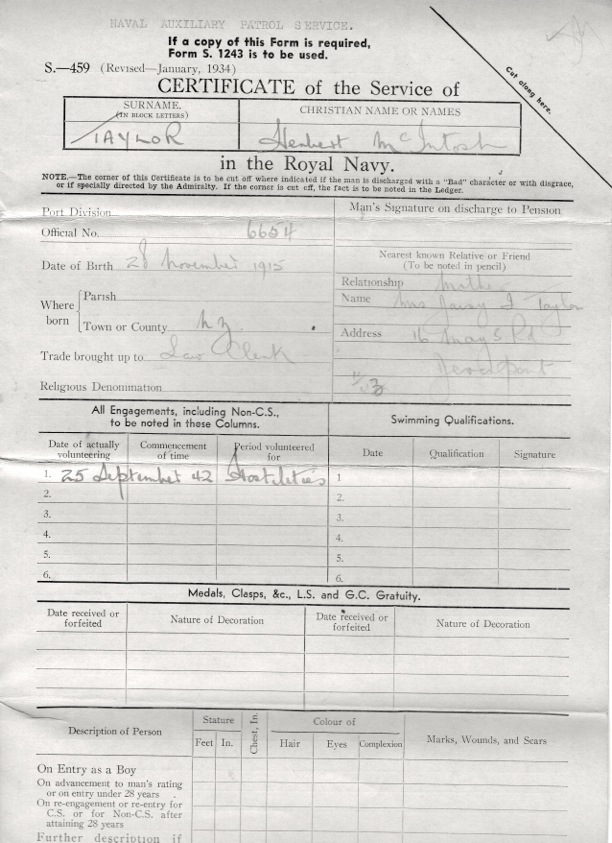 NAVAL AUXILIARY PATROL SERVICE.
If a copy of this Form is required,
Form S. 1243 is to be used.
S.—459 (Revised—January, 1934)
Cut along here.
CERTIFICATE of the Service of
SURNAME.
(IN BLOCK LETTERS)
CHRISTIAN NAME OR NAMES
TAYLOR
Herbert McIntosh
in the Royal Navy.
NOTE.—The corner of this Certificate is to be cut off where indicated if the man is discharged with a "Bad" character or with disgrace,
or if specially directed by the Admiralty. If the corner is cut off, the fact is to be noted in the Ledger.
Port Division
Man's Signature on discharge to Pension
Official No. 6654
Date of Birth 28 November 1915
Nearest known Relative or Friend
(To be noted in pencil)
Relationship Mother
Where born
Parish
Name Mrs I Taylor
Town or County N.Z.
Address 16 Mays Rd
Devonport
Trade brought up to Law Clerk
Religious Denomination
All Engagements, including Non-C.S.,
to be noted in these Columns.
Swimming Qualifications.
Date of actually volunteering
Commencement of time
Period volunteered for
Date
Qualification
Signature
1. 25 September 42 Hostilities 1
2. 2.
3. 3.
4. 4.
5. 5.
6. 6.
Medals, Clasps, &c., L.S. and G.C. Gratuity.
Date received or forfeited
Nature of Decoration
Date received or forfeited
Nature of Decoration
Description of Person
Stature
Feet In.
Chest, In.
Colour of
Hair Eyes Complexion
Marks, Wounds, and Scars
On Entry as a Boy
On advancement to man's rating
or on entry under 28 years
On re-engagement or re-entry for
C.S. or for Non-C.S. after
attaining 28 years
Further description if